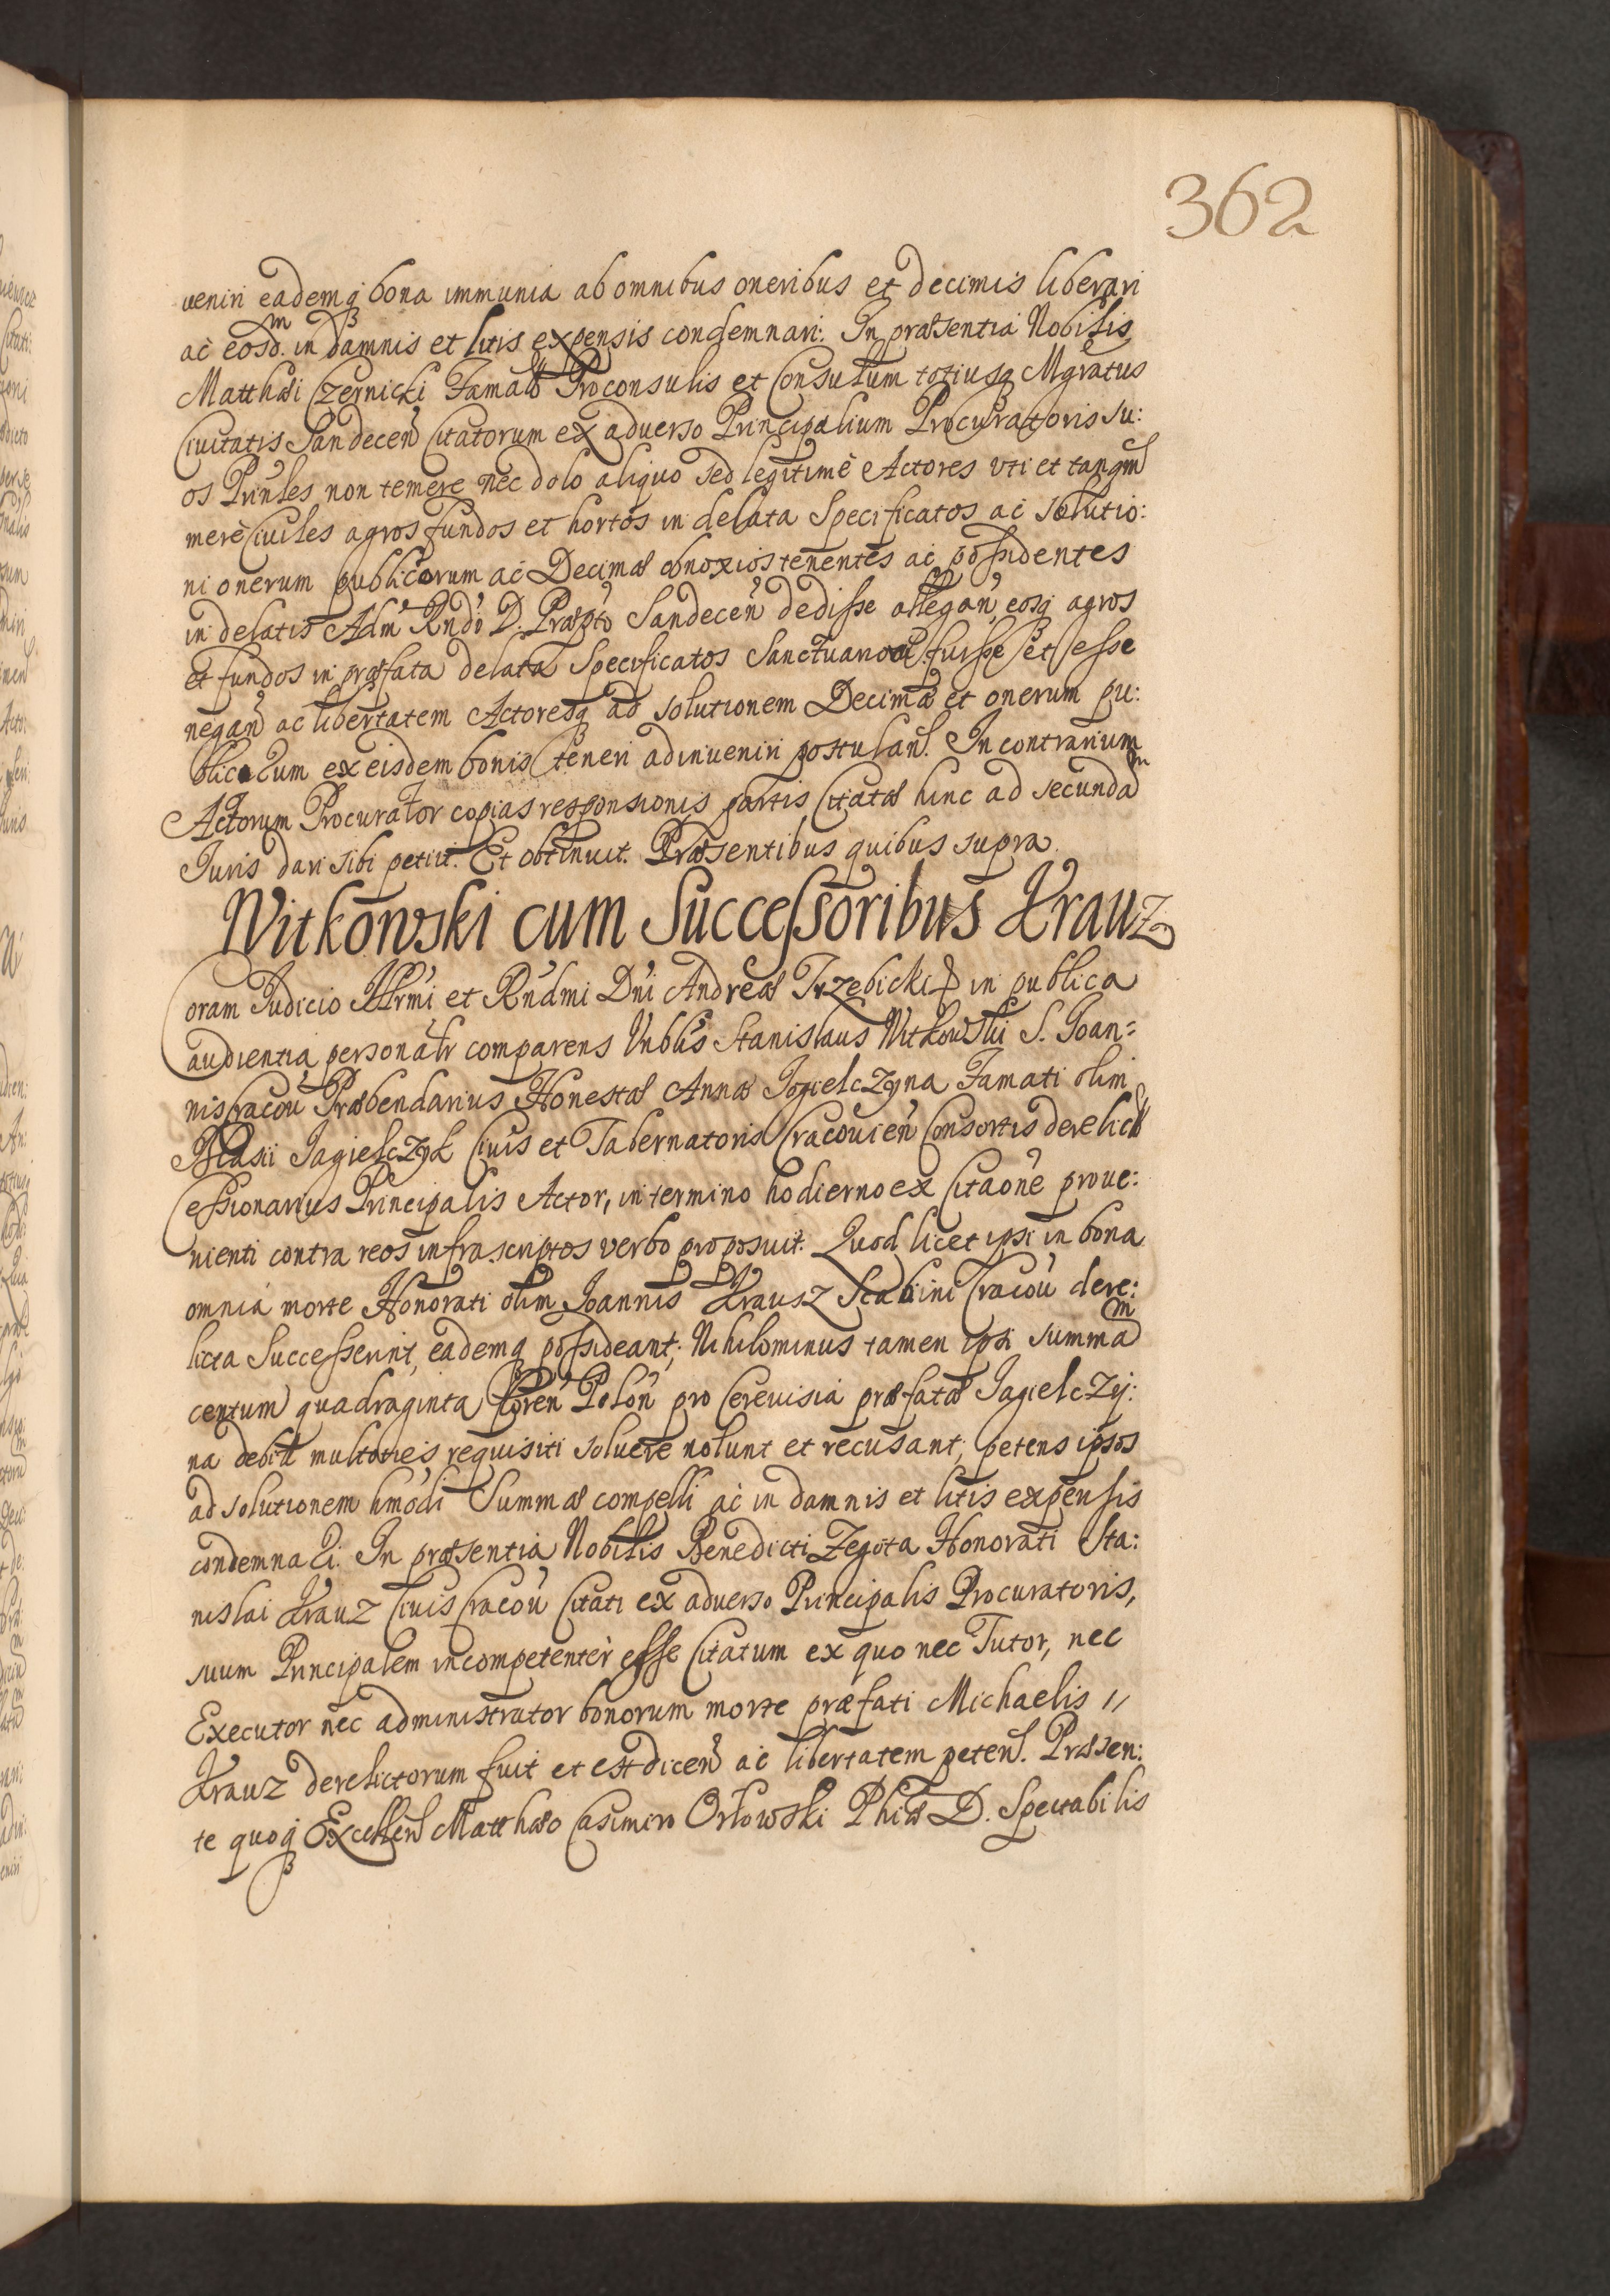 362
ueniri eademq bona immunia ab omnibus oneribus et decimis liberari
ac eosdm. in damnis et litis expensis condemnari: In præsentia Nobilis
Matthæi Czernicki Famatō Proconsulis et Consulum totiusq Mgratus
Ciuitatis Sandecen̄ Citatorum ex aduerso Principalium Procuratoris su:
os Prinłes non temere nec dolo aliquo sed legitimè Actores vti et tanqm̄
merè Ciuiles agros fundos et hortos in delata Specificatos ac solutio:
ni onerum publicorum ac Decimæ obnoxios tenentes ac possidentes
in delatis Adm̄ Rnd̄o D. Præpt̄o Sandecen̄ dedisse allegan̄, eosq agros
et fundos in præfata delata Specificatos Sanctuarioœ fuisse et esse
negan̄ ac libertatem Actoresq ad solutionem Decimæ et onerum pu:
blicorum ex eisdem bonis teneri adinueniri postulans. In contrarium
Actorum Procurator copias responsionis partis Citatæ hinc ad secundam
Juris dari sibi petiit. Et obtinuit. Præsentibus quibus supra.
Witkowski cum Successoribus Krauz
Coram Judicio Illrmi et Rndmi Dn̄i Andreæ Trzebicki in publica
audientia personałr comparens Vnbłis Stanislaus Witkowski S. Joan=
nis Cracou Præbendarius Honestæ Annæ Jagielczyna Famati olim
Blasii Jagielczyk Ciuis et Tabernatoris Cracouien̄ Consortis derelictæ
Cessionarius Principalis Actor, in termino hodierno ex Citaōne proue:
nienti contra reos infrascriptos verbo proposuit. Quod licet ipsi in bona
omnia morte Honorati olim Joannis Krausz Scabini Cracou̇ dere:
licta Successerint, eademq possideant; Nihilominus tamen ipsi summam
centum quadraginta floren̄ Polon̄ pro Cereuisia præfatæ Jagielczy:
na debitā multoties requisiti soluere nolunt et recusant, petens ipsos
ad solutionem hmōdi Summæ compelli ac in damnis et litis expensis
condemnari. In præsentia Nobilis Benedicti Zegota Honorati Sta:
nislai Krauz Ciuis Cracou̇ Citati ex aduerso Principalis Procuratoris,
suum Principalem incompetenter esse Citatum ex quo nec Tutor, nec
Executor nec administrator bonorum morte præfati Michaelis //
Krauz derelictorum fuit et est dicen̄ ac libertatem petens. Præsen:
te quoq Excellen̄ Matthæo Casimiro Orłowski Phiæ D. Spectabilis